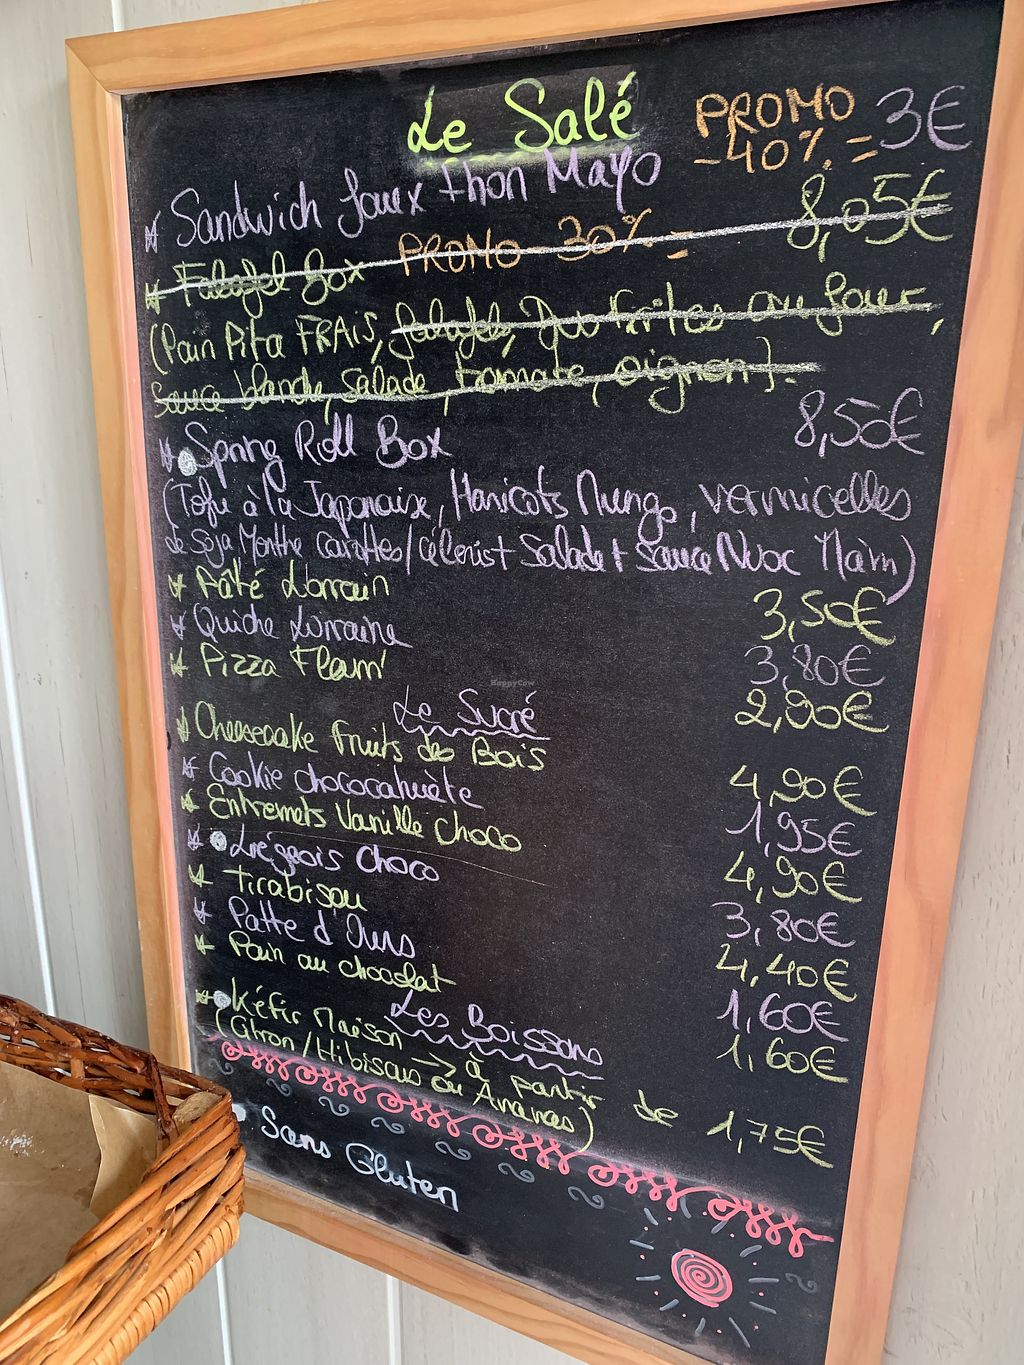 Le Salé
PROMO
-40% = 3€
Sandwich faux thon Mayo
Falafel Box PROMO -30% = 8,05€
(Pain Pita FRAIS, falafels, frites au four,
Sauce blanche, salade, tomate, oignon).
Spring Roll Box 8,50€
(Tofu à la Japonaise, Haricots Mungo, vermicelles
de Soja, Menthe Carottes/Céleris + Salade + Sauce Nuoc Mâm)
Pâté Lorrain 3,50€
Quiche Lorraine 3,80€
Pizza Flam' 2,90€
Le Sucré
Cheesecake fruits des Bois 4,90€
Cookie chococahuète 1,95€
Entremets Vanille choco 4,90€
Liégeois Choco 3,80€
Tirabisou 4,40€
Patte d'Ours 1,60€
Pain au chocolat 1,60€
Les Boissons
Kéfir Maison → à partir de 1,75€
(Citron/Hibiscus ou Ananas)
Sans Gluten
HappyCow